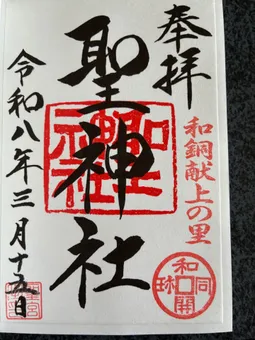 奉拝
和銅献上の里
聖神社
和同開珎
令和八年三月十五日